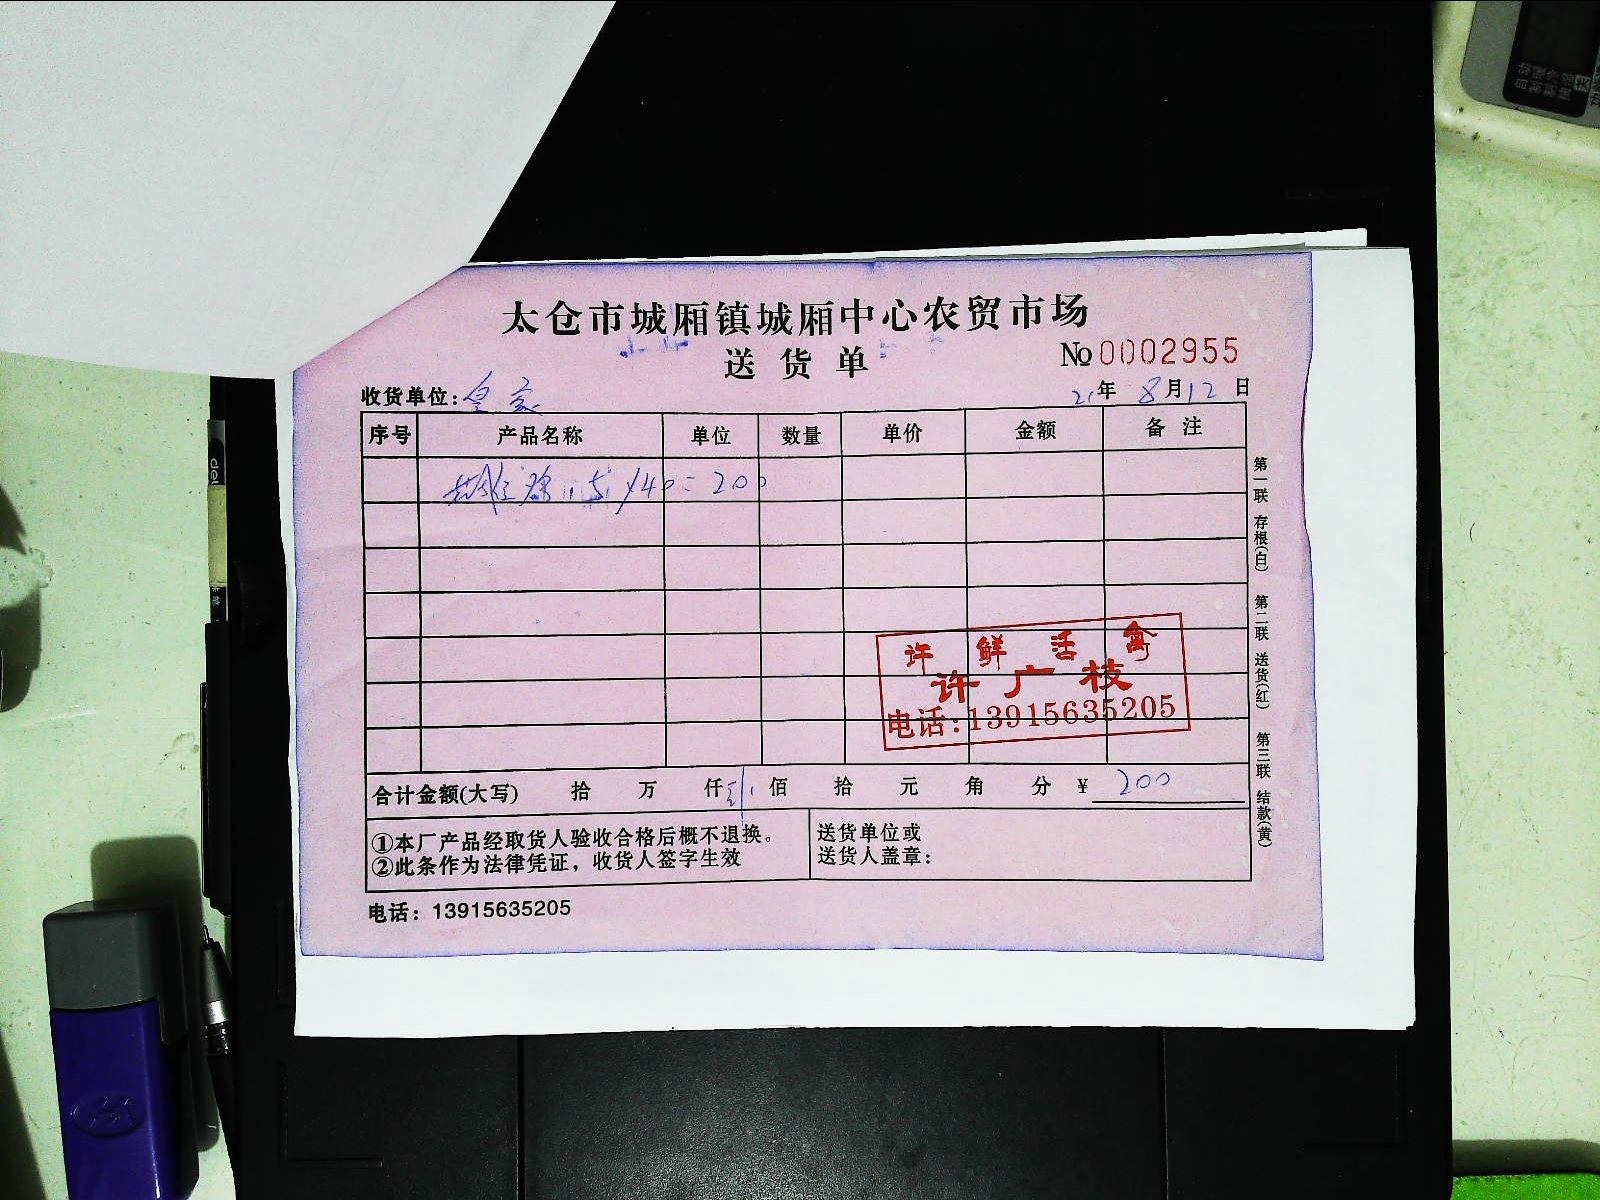 太仓市城厢镇城厢中心农贸市场
送货单
№ 0002955
收货单位: 皇家
21年 8月12日
序号 产品名称 单位 数量 单价 金额 备注
5 × 40 = 200
许鲜活禽
许广枝
电话:13915635205
合计金额(大写) 拾 万 仟 佰 拾 元 角 分 ¥ 200
①本厂产品经取货人验收合格后概不退换。
②此条作为法律凭证，收货人签字生效
送货单位或
送货人盖章:
电话: 13915635205
第一联 存根(白) 第二联 送货(红) 第三联 结款(黄)
deli